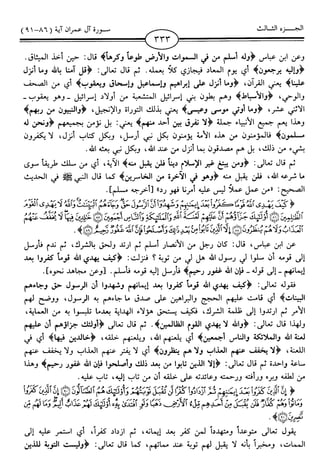 الجزء الثالث
٣٣٣
سورة آل عمران آية (٨٦-٩١)
وعن ابن عباس ﴿وله أسلم من في السموات والأرض طوعاً وكرهاً﴾ قال: حين أخذ الميثاق.
﴿وإليه يرجعون﴾ أي يوم المعاد فيجازي كلاً بعمله. ثم قال تعالى: ﴿قل آمنا بالله وما أنزل
علينا﴾ يعني القرآن، ﴿وما أنزل على إبراهيم وإسماعيل وإسحاق ويعقوب﴾ أي من الصحف
والوحي، ﴿والأسباط﴾ وهم بطون بني إسرائيل المتشعبة من أولاد إسرائيل ـ وهو يعقوب ـ
الاثني عشر، ﴿وما أوتي موسى وعيسى﴾ يعني بذلك التوراة والإنجيل، ﴿والنبيون من ربهم﴾
وهذا يعم جميع الأنبياء جملة ﴿لا نفرق بين أحد منهم﴾ يعني: بل نؤمن بجميعهم ﴿ونحن له
مسلمون﴾ فالمؤمنون من هذه الأمة يؤمنون بكل نبي أرسل، وبكل كتاب أنزل، لا يكفرون
بشيء من ذلك، بل هم مصدقون بما أنزل من عند الله، وبكل نبي بعثه الله.
ثم قال تعالى: ﴿ومن يبتغ غير الإسلام ديناً فلن يقبل منه﴾ الآية، أي من سلك طريقاً سوى
ما شرعه الله، فلن يقبل منه ﴿وهو في الآخرة من الخاسرين﴾ كما قال النبي ﷺ في الحديث
الصحيح: «من عمل عملاً ليس عليه أمرنا فهو رد» [أخرجه مسلم].
﴿كَيْفَ يَهْدِي اللَّهُ قَوْمًا كَفَرُوا بَعْدَ إِيمَانِهِمْ وَشَهِدُوا أَنَّ الرَّسُولَ حَقٌّ وَجَاءَهُمُ الْبَيِّنَاتُ وَاللَّهُ لَا يَهْدِي الْقَوْمَ
الظَّالِمِينَ ۝ أُولَئِكَ جَزَاؤُهُمْ أَنَّ عَلَيْهِمْ لَعْنَةَ اللَّهِ وَالْمَلَائِكَةِ وَالنَّاسِ أَجْمَعِينَ ۝ خَالِدِينَ فِيهَا لَا يُخَفَّفُ عَنْهُمُ
الْعَذَابُ وَلَا هُمْ يُنْظَرُونَ ۝ إِلَّا الَّذِينَ تَابُوا مِنْ بَعْدِ ذَلِكَ وَأَصْلَحُوا فَإِنَّ اللَّهَ غَفُورٌ رَحِيمٌ ۝﴾.
عن ابن عباس، قال: كان رجل من الأنصار أسلم ثم ارتد ولحق بالشرك، ثم ندم فأرسل
إلى قومه أن سلوا لي رسول الله هل لي من توبة؟ فنزلت: ﴿كيف يهدي الله قوماً كفروا بعد
إيمانهم ـ إلى قوله ـ فإن الله غفور رحيم﴾ فأرسل إليه قومه فأسلم. [وعن مجاهد نحوه].
فقوله تعالى: ﴿كيف يهدي الله قوماً كفروا بعد إيمانهم وشهدوا أن الرسول حق وجاءهم
البينات﴾ أي قامت عليهم الحجج والبراهين على صدق ما جاءهم به الرسول، ووضح لهم
الأمر ثم ارتدوا إلى ظلمة الشرك، فكيف يستحق هؤلاء الهداية بعدما تلبسوا به من العماية،
ولهذا قال تعالى: ﴿والله لا يهدي القوم الظالمين﴾. ثم قال تعالى ﴿أولئك جزاؤهم أن عليهم
لعنة الله والملائكة والناس أجمعين﴾ أي يلعنهم الله، ويلعنهم خلقه، ﴿خالدين فيها﴾ أي في
اللعنة، ﴿لا يخفف عنهم العذاب ولا هم ينظرون﴾ أي لا يفتر عنهم العذاب ولا يخفف عنهم
ساعة واحدة ثم قال تعالى: ﴿إلا الذين تابوا من بعد ذلك وأصلحوا فإن الله غفور رحيم﴾ وهذا
من لطفه وبره ورأفته ورحمته وعائدته على خلقه أن من تاب إليه، تاب عليه.
﴿إِنَّ الَّذِينَ كَفَرُوا بَعْدَ إِيمَانِهِمْ ثُمَّ ازْدَادُوا كُفْرًا لَنْ تُقْبَلَ تَوْبَتُهُمْ وَأُولَئِكَ هُمُ الضَّالُّونَ ۝ إِنَّ الَّذِينَ كَفَرُوا
وَمَاتُوا وَهُمْ كُفَّارٌ فَلَنْ يُقْبَلَ مِنْ أَحَدِهِمْ مِلْءُ الْأَرْضِ ذَهَبًا وَلَوِ افْتَدَى بِهِ أُولَئِكَ لَهُمْ عَذَابٌ أَلِيمٌ وَمَا لَهُمْ مِنْ
نَاصِرِينَ ۝﴾.
يقول تعالى متوعداً ومتهدداً لمن كفر بعد إيمانه، ثم ازداد كفراً، أي استمر عليه إلى
الممات، ومخبراً بأنه لا يقبل لهم توبة عند مماتهم، كما قال تعالى: ﴿وليست التوبة للذين